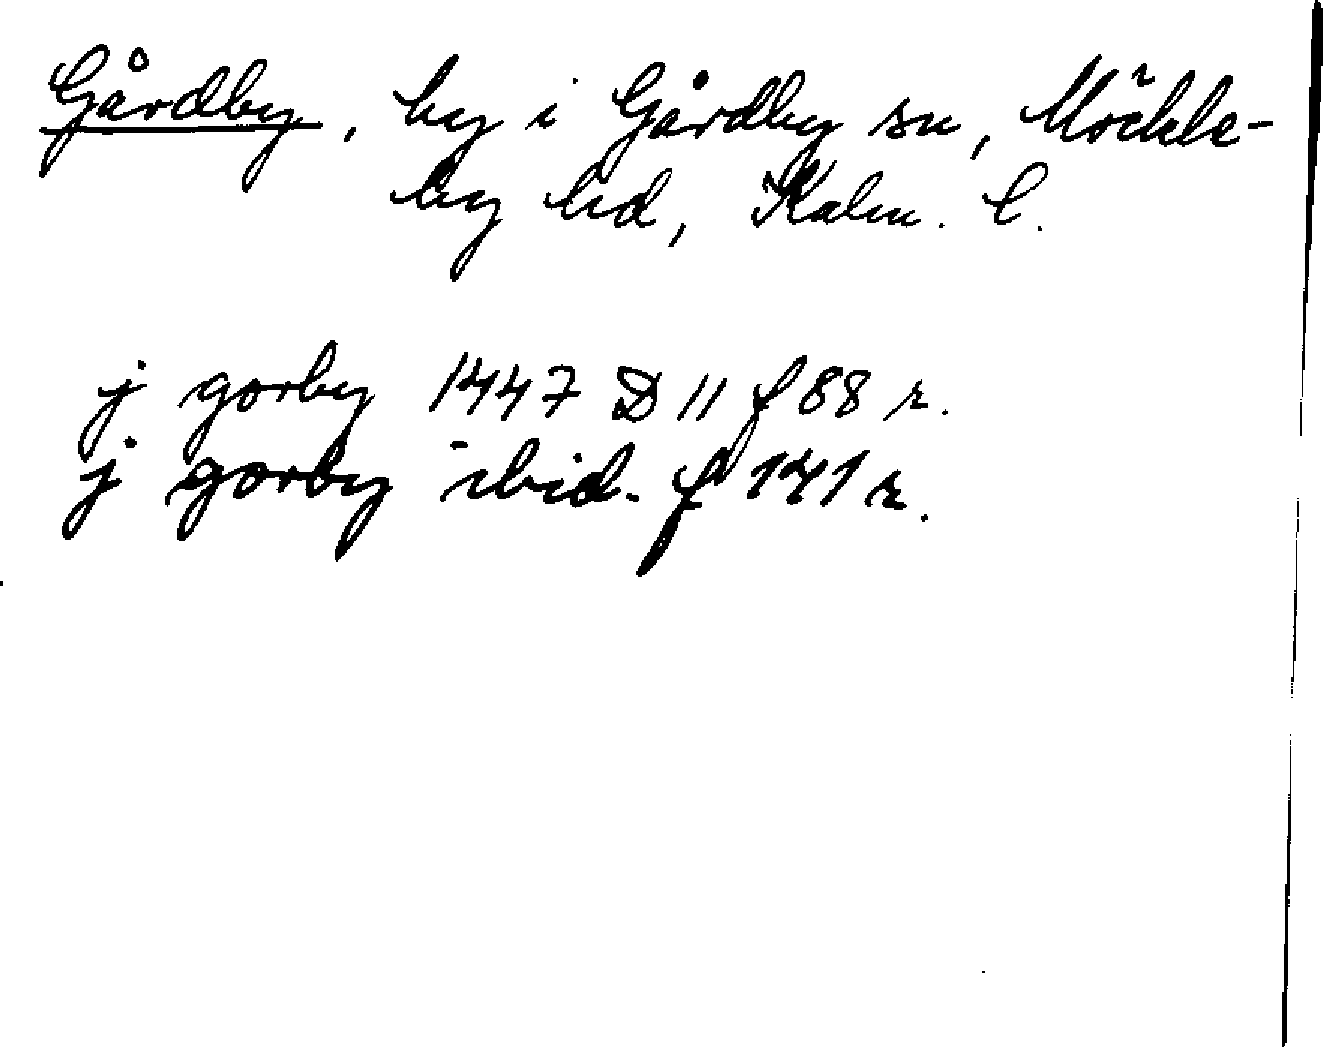 Gårdby, by i Gårdby sn, Möckle-
by hd, Kalm. l.
j gorby 1447 D 11 f 88 r.
j gorby ibid. f 141 r.